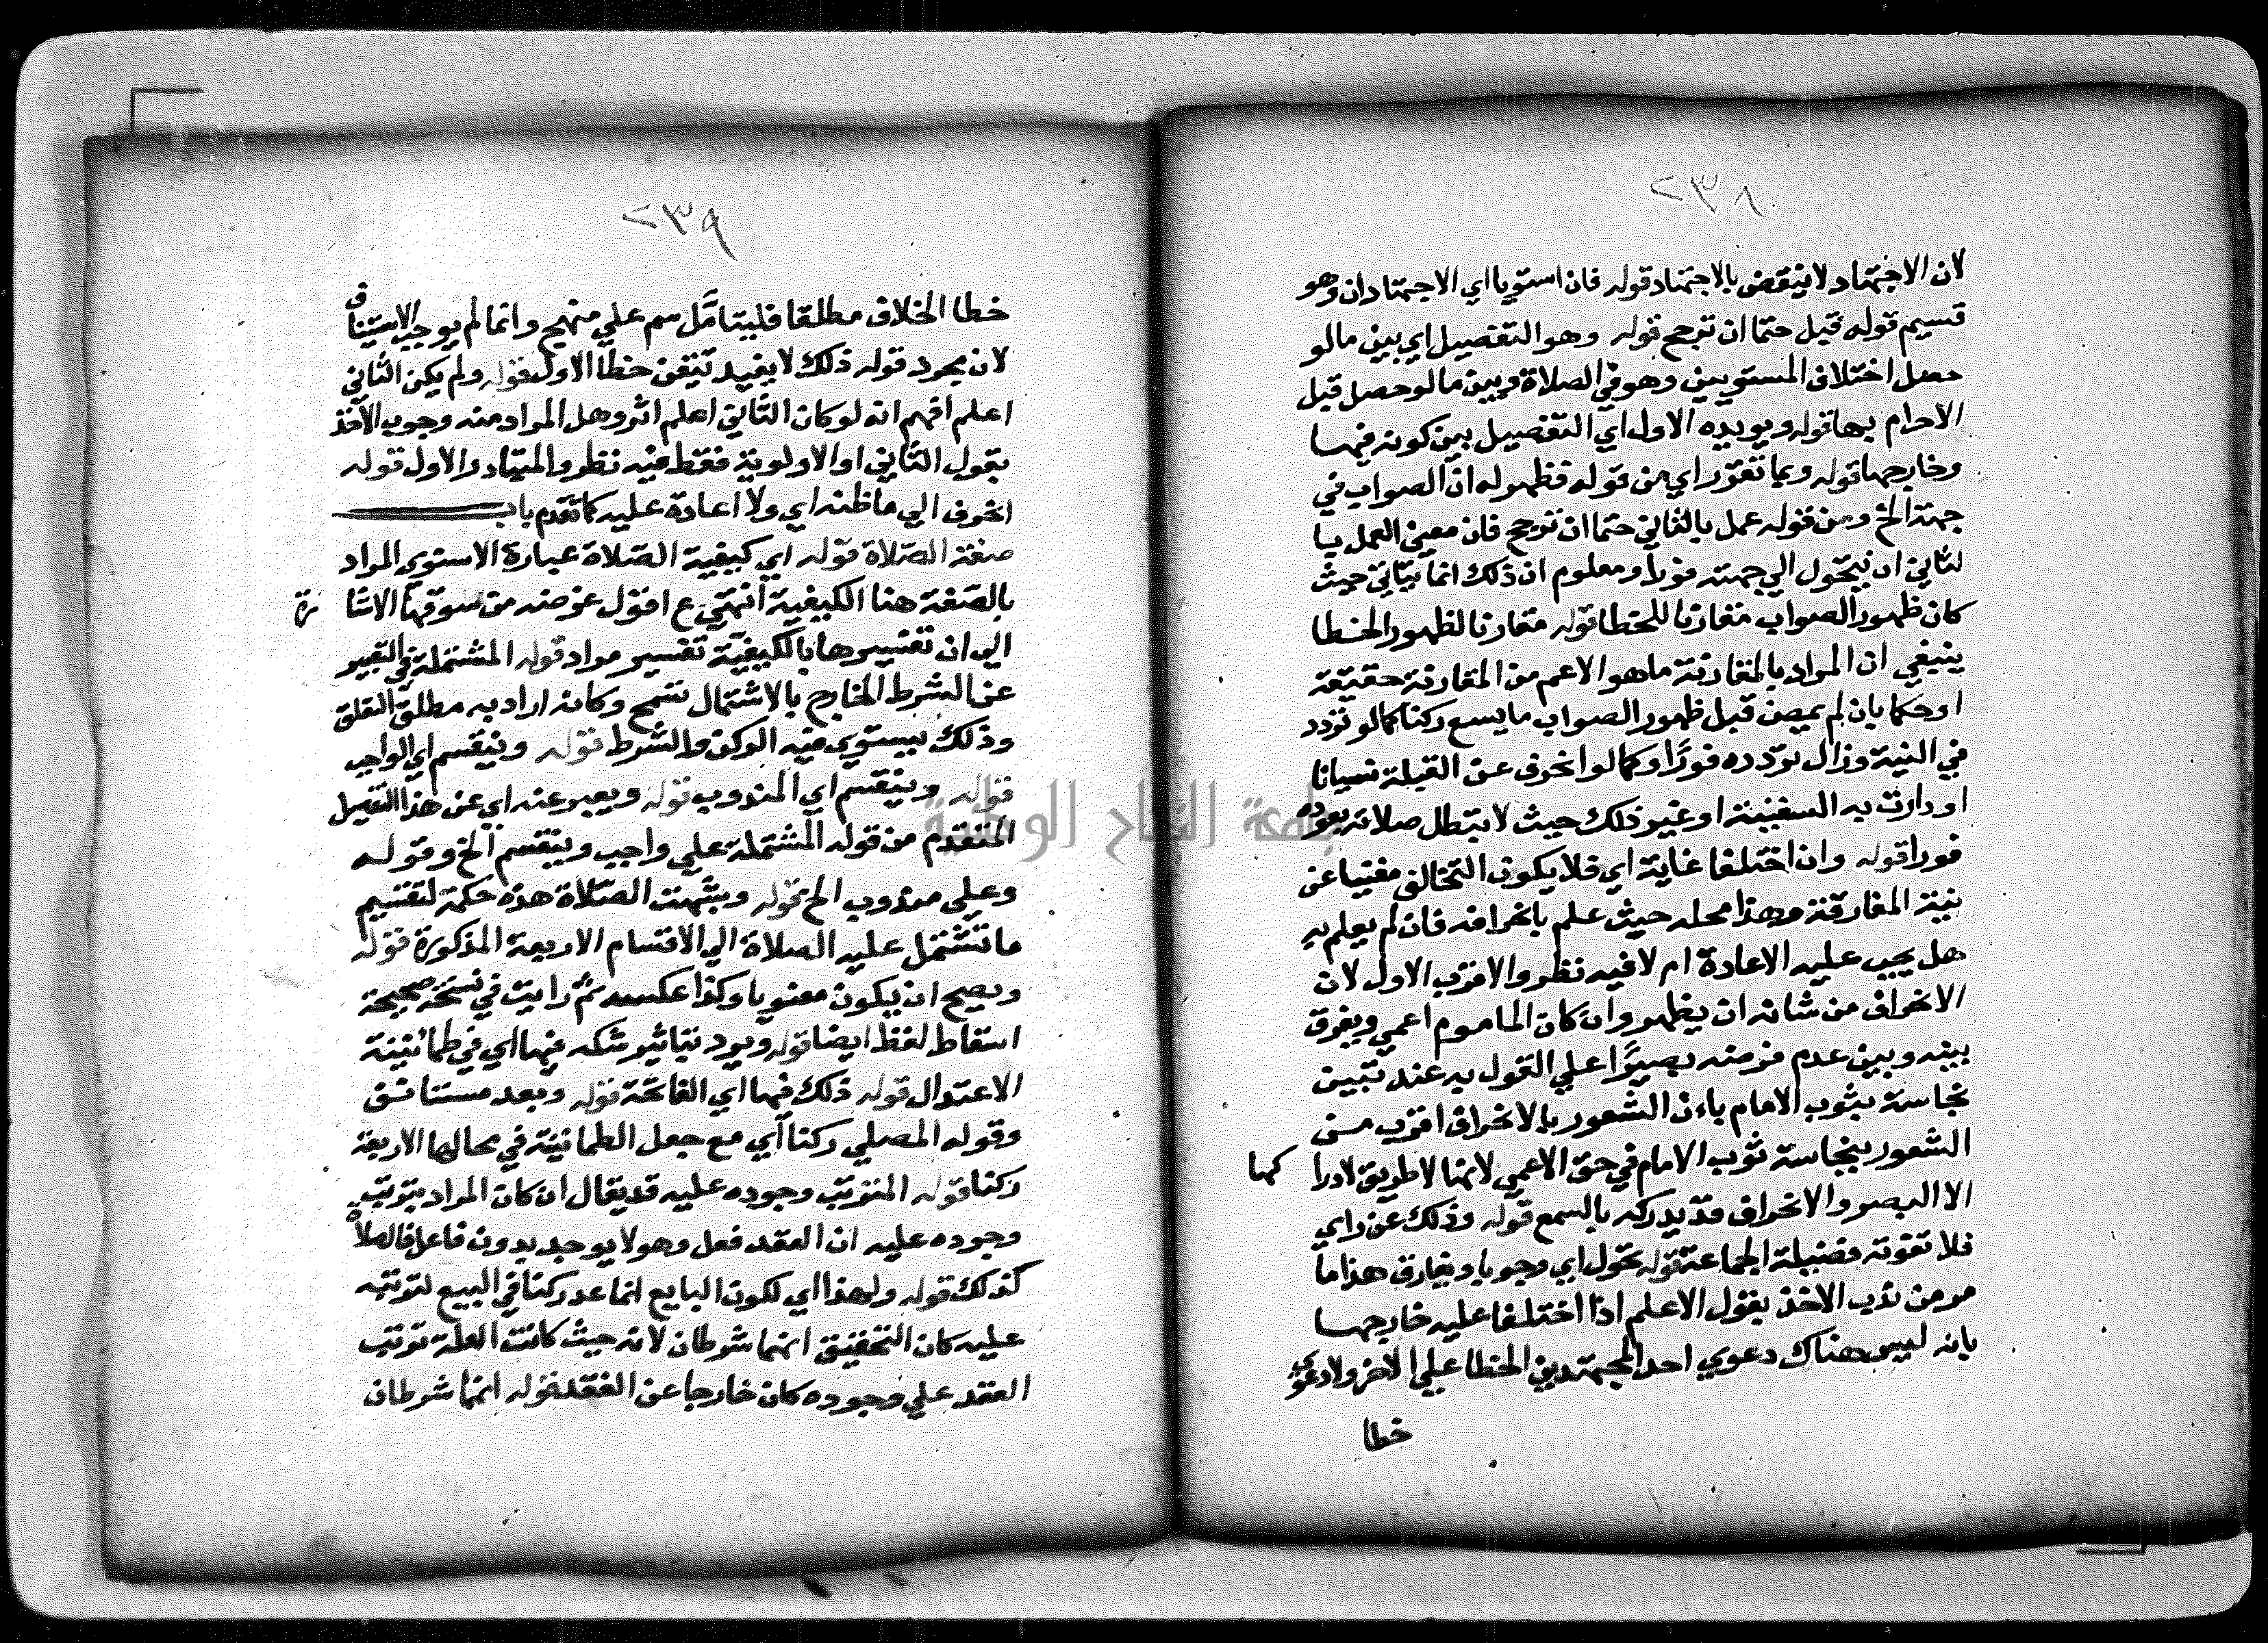 ٢٣٨
لان الاجتهاد لا ينقض بالاجتهاد قوله فان استويا اي الاجتهادان وهو
قسيم قوله قبل حتما ان ترجح قوله وهو التفصيل اي بين مالو
حصل اختلاف المستويين وهو في الصلاة وبين مالو حصل قبل
الاحرام بها قوله ويويده الاول اي التفصيل بين كونه فيها
وخارجها قوله وبما تقرر اي من قوله فظهر له ان الصواب في
جهة الخ ومن قوله عمل بالثاني حتما ان ترجح فان معني العمل با
لثاني ان يتحول الي جهته فورا ومعلوم ان ذلك انما يتاتي حيث
كان ظهور الصواب مقارنا للخطا قوله مقارنا لظهور الخطا
ينبغي ان المراد بالمقارنة ما هو الاعم من المقارنة حقيقة
او حكما بان لم يمض قبل ظهور الصواب ما يسع ركنا كما لو تردد
في النية وزال تردده فورًا وكما لو انحرف عن القبلة نسيانا
او دارت به السفينة او غير ذلك حيث لا تبطل صلاته بعوده
فورا قوله وان اختلفا غاية اي فلا يكون التخالف مغنيا عن
نية المفارقة وهذا محله حيث علم بانحرافه فان لم يعلم به
هل يجب عليه الاعادة ام لا فيه نظر والاقرب الاول لان
الانحراف من شانه ان يظهر وان كان الماموم اعمي ويفرق
بينه وبين عدم فرضه بصيرًا علي القول به عند تبين
نجاسة بثوب الامام بان الشعور بالانحراف اقرب من
الشعور بنجاسة ثوب الامام في حق الاعمي لانها لا طريق لادرا كها
الا البصر والانحراف قد يدركه بالسمع قوله وذلك عن راي
فلا تفوته فضيلة الجماعة قوله تحول اي وجوبا ويفارق هذا ما
مر من ندب الاخذ بقول الاعلم اذا اختلفا عليه خارجها
بانه ليس هناك دعوي احد المجتهدين الخطا علي الاخر ولا دعوي
خطا
٢٣٩
خطا الخلاف مطلقا فليتامَّل سم علي منهج وانما لم يوجب الاستيناف
لان مجرد قوله ذلك لا يفيد تيقن خطا الاول قوله ولم يكن الثاني
اعلم افهم انه لو كان الثاني اعلم اثر وهل المراد منه وجوب الاخذ
بقول الثاني او الاولوية فقط فيه نظر والمتبادر الاول قوله
انحرف الي ما ظنه اي ولا اعادة عليه كما تقدم باب
صفة الصلاة قوله اي كيفية الصلاة عبارة الاسنوي المراد
بالصفة هنا الكيفية انتهي ع اقول غرضه من سوقها الاشا رة
الي ان تفسيرها بالكيفية تفسير مراد قوله المشتملة في التعبير
عن الشرط الخارج بالاشتمال تسمح وكانه اراد به مطلق التعلق
وذلك يستوي فيه الركن والشرط قوله وينقسم اي الواجب
قوله وينقسم اي المندوب قوله ويعبر عنه اي عن هذا التفصيل
المتقدم من قوله المشتملة علي واجب وينقسم الخ وقوله
وعلي مندوب الخ قوله وشبهت الصلاة هذه حكمة لتقسيم
ما تشتمل عليه الصلاة الي الاقسام الاربعة المذكورة قوله
ويصح ان يكون معنويا وكذا عكسه ثم رايت في نسخة صحيحة
اسقاط لفظ ايضا قوله ويرد بتاثير شكه فيها اي في طمانينة
الاعتدال قوله ذلك فيها اي الفاتحة قوله وبعد مستتا نسق
وقوله المصلي ركنا اي مع جعل الطمانينة في محالها الاربعة
ركنا قوله المترتب وجوده عليه قد يقال ان كان المراد بترتب
وجوده عليه ان العقد فعل وهو لا يوجد بدون فاعل فالصلاة
كذلك قوله ولهذا اي لكون البايع انما عد ركنا في البيع لترتبه
عليه كان التحقيق انهما شرطان لانه حيث كانت العلة ترتب
العقد علي وجوده كان خارجا عن العقد قوله انهما شرطان